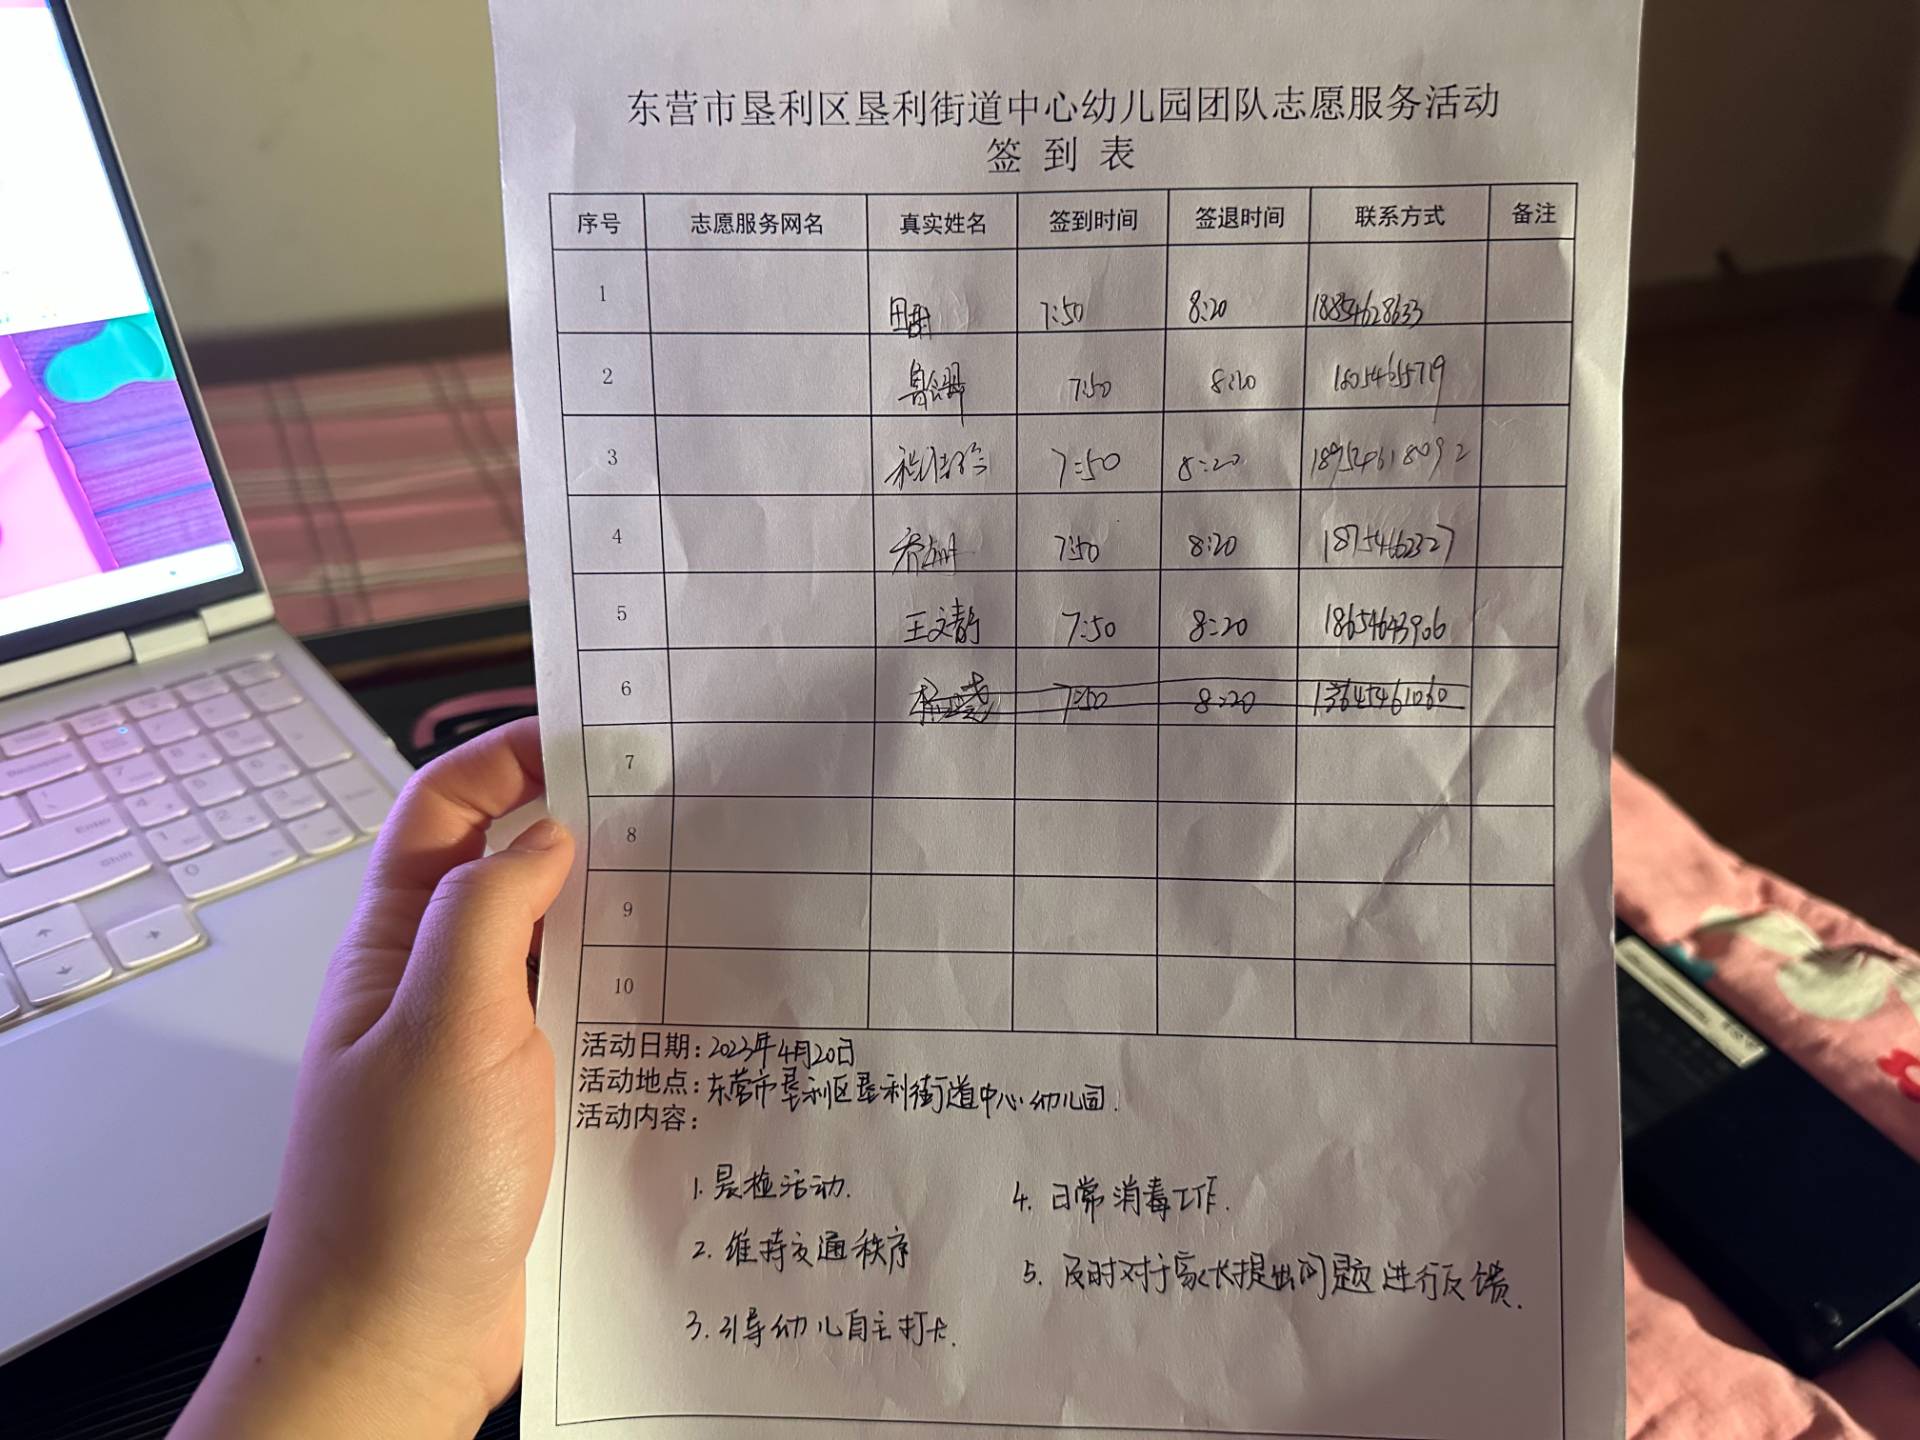 东营市垦利区垦利街道中心幼儿园团队志愿服务活动
签到表
序号 志愿服务网名 真实姓名 签到时间 签退时间 联系方式 备注
1 田甜 7:50 8:20 18854628633
2 7:50 8:20
3 7:50 8:20 18954618092
4 7:50 8:20 18754662327
5 王文静 7:50 8:20 18654643906
6 7:50 8:20 13645461060
7
8
9
10
活动日期:2023年4月20日
活动地点:东营市垦利区垦利街道中心幼儿园.
活动内容:
1. 晨检活动.
2. 维持交通秩序
3. 引导幼儿自主打卡.
4. 日常消毒工作.
5. 及时对于家长提出问题进行反馈.